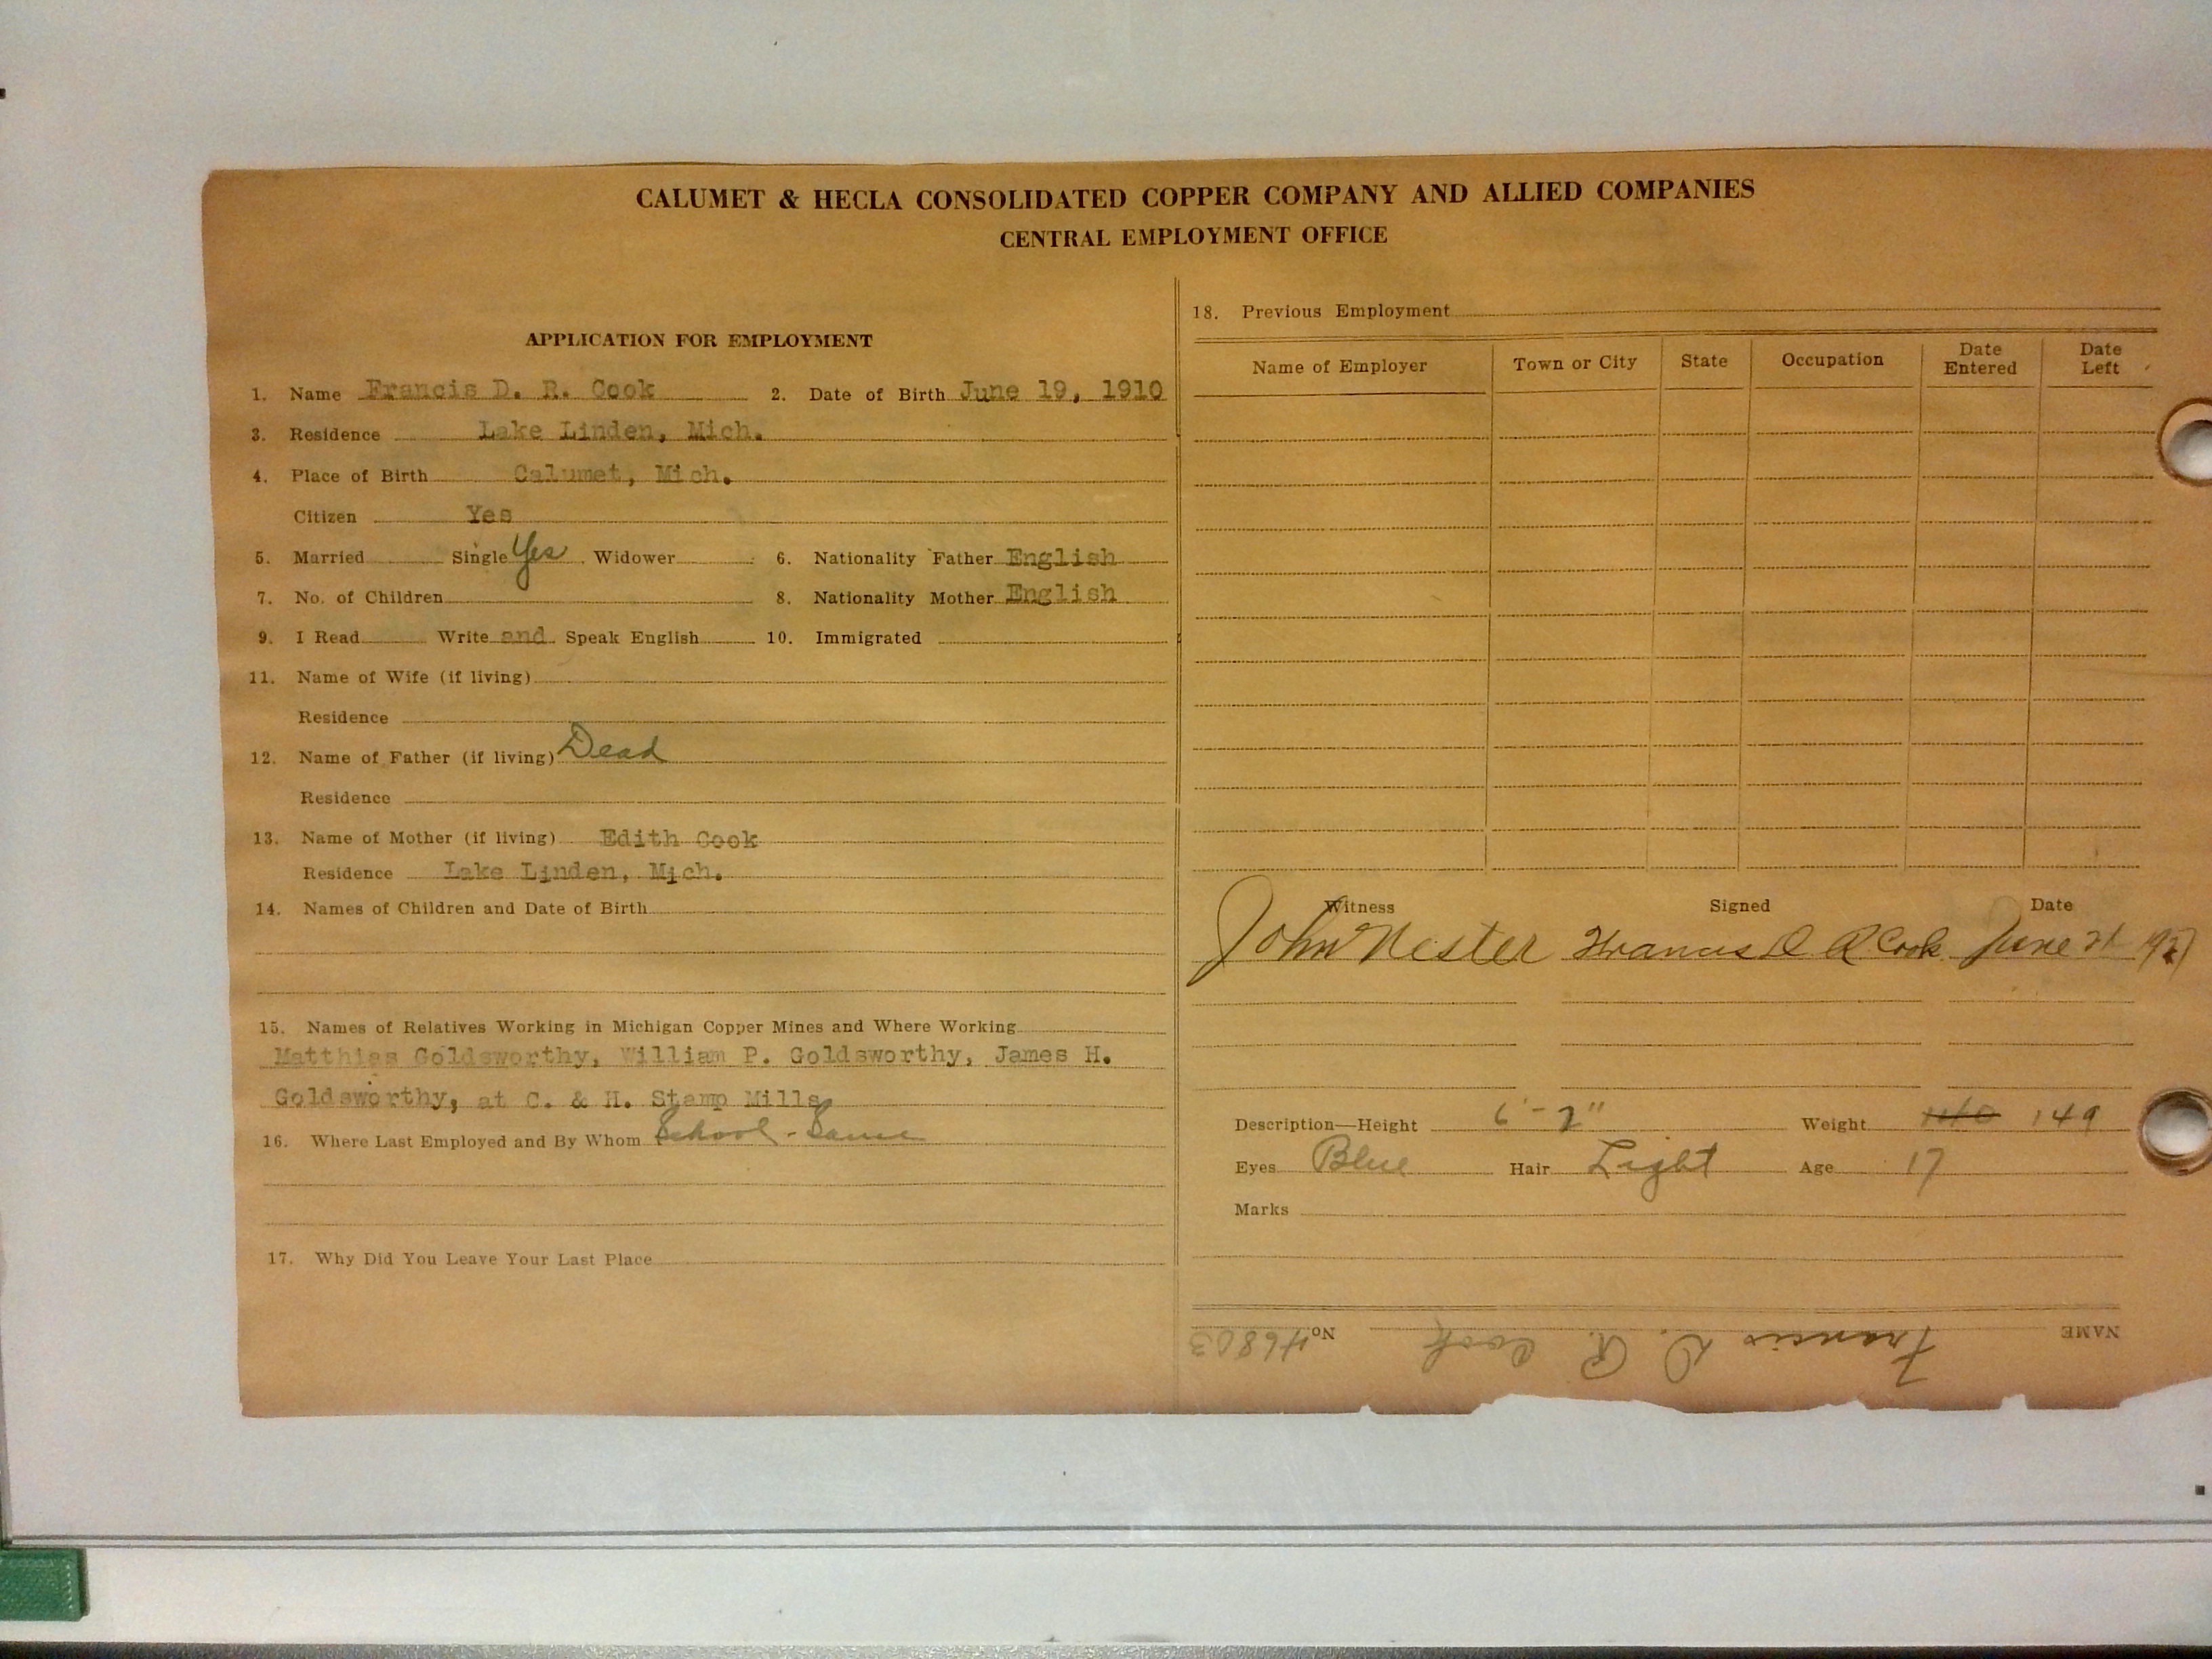 CALUMET & HECLA CONSOLIDATED COPPER COMPANY AND ALLIED COMPANIES
CENTRAL EMPLOYMENT OFFICE
APPLICATION FOR EMPLOYMENT
1. Name Francis D. R. Cook 2. Date of Birth June 19, 1910
3. Residence Lake Linden, Mich.
4. Place of Birth Calumet, Mich.
Citizen Yes
5. Married Single Yes Widower 6. Nationality Father English
7. No. of Children 8. Nationality Mother English
9. I Read Write and Speak English 10. Immigrated
11. Name of Wife (if living)
Residence
12. Name of Father (if living) Dead
Residence
13. Name of Mother (if living) Edith Cook
Residence Lake Linden, Mich.
14. Names of Children and Date of Birth
15. Names of Relatives Working in Michigan Copper Mines and Where Working
Matthias Goldsworthy, William P. Goldsworthy, James H.
Goldsworthy, at C. & H. Stamp Mills
16. Where Last Employed and By Whom School -
17. Why Did You Leave Your Last Place
18. Previous Employment
Name of Employer Town or City State Occupation Date Entered Date Left
Witness Signed Date
John Nester Francis D R. Cook June 21 1927
Description—Height 6'-2" Weight 140 149
Eyes Blue Hair Light Age 17
Marks
NAME Francis D. R. Cook No. 46803